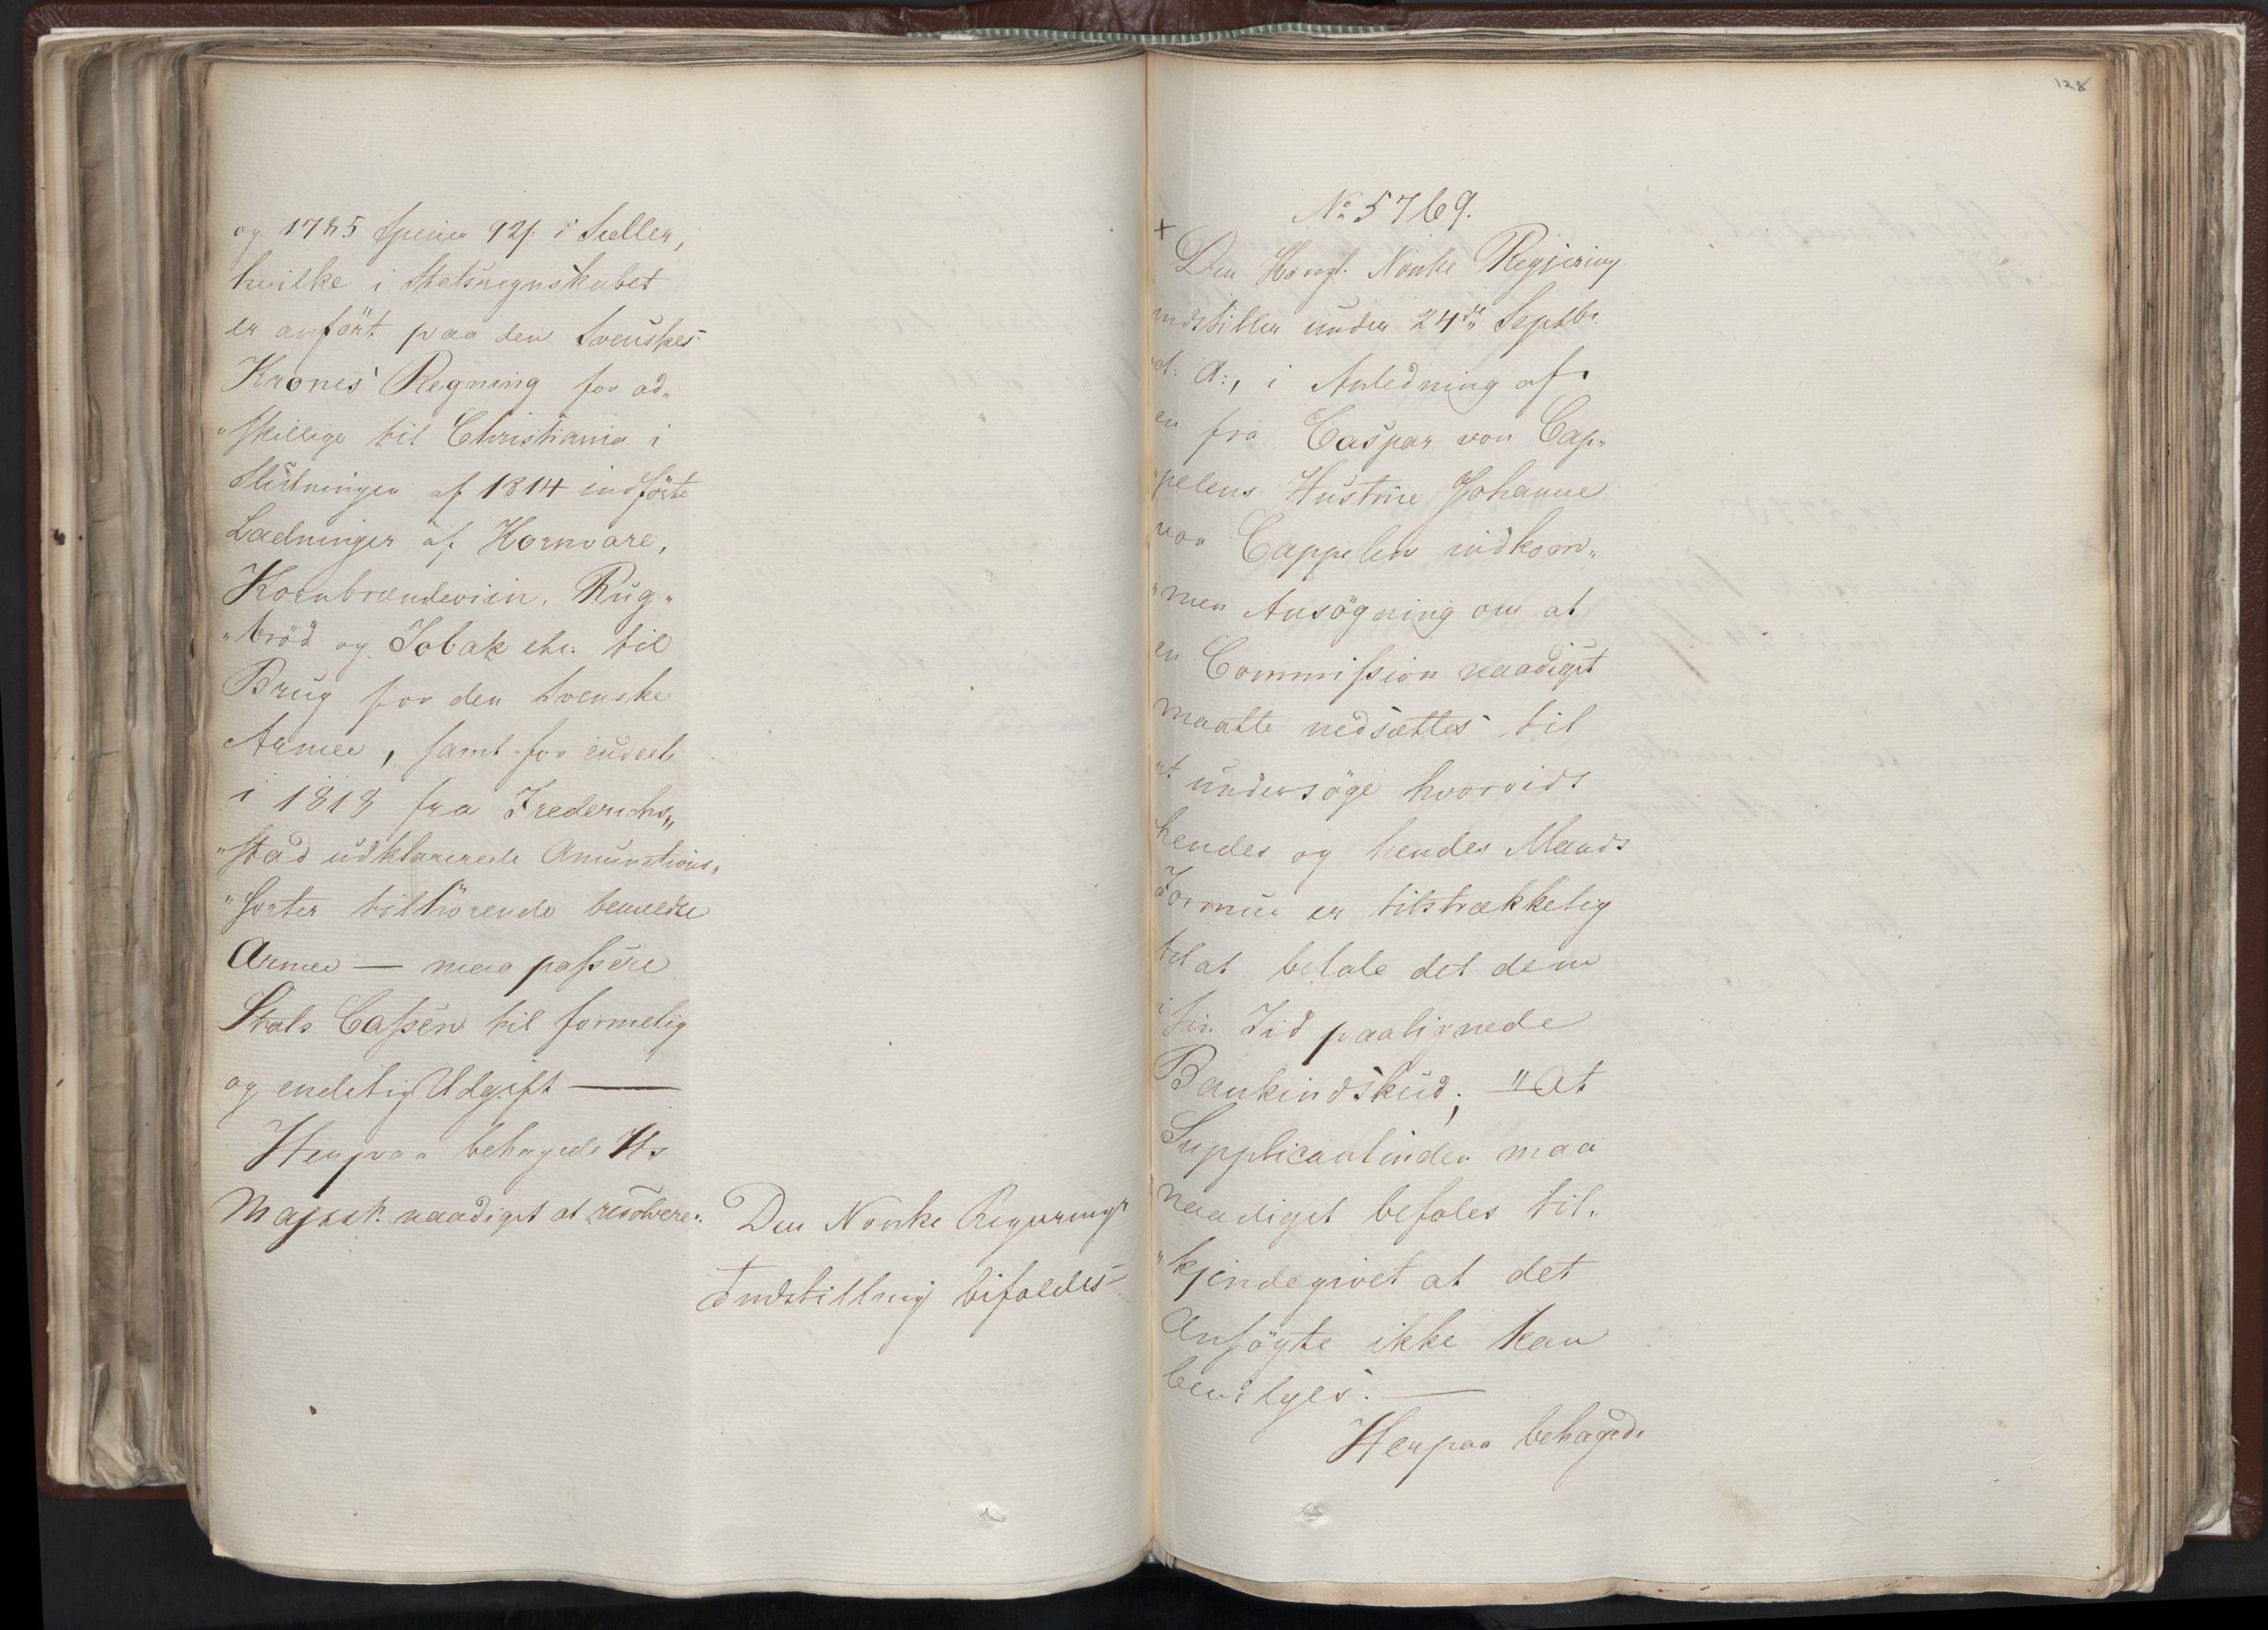 og 1785 Species 92ſ i Seddler,
hvilke i Statsregnskabet
er anfört paa den Svenske
Krones Regning for ad„
„skillige til Christiania i
Slutningen af 1814 indförte
Ladninger af Kornvare,
Kornbrændeviin, Rug„
„bröd og Tobak etc: til
Brug for den Svenske
Armee, samt for endeel
i 1818 fra Frederichs„
„stad udklarerede Amunitions„
„sorter tilhörende bemeldte
Armee — maa passere
Stats Cassen til formelig
og endelig Udgift —
Herpaa behagede Hs
Majestt. naadigst at resolvere:
Den Norske Regjerings
Indstilling bifaldes
128
No 5769.
+
Den Kongl. Norske Regjering
indstiller under 24de Septbr.
d: A:, i Anledning af
en fra Caspar von Cap„
pelens Hustrue Johanne
von Cappelen indkom„
„men Ansögning om at
en Commission naadigst
maatte nedsættes til
at undersöge hvorvidt
hendes og hendes Mands
Formue er tilstrækkelig
til at betale det dem
i sin Tid paalignede
Bankindskud; "At
Supplicantinden maa
naadigst befales til„
„kjendegivet at det
Ansögte ikke kan
bevilges. —
Herpaa behagede